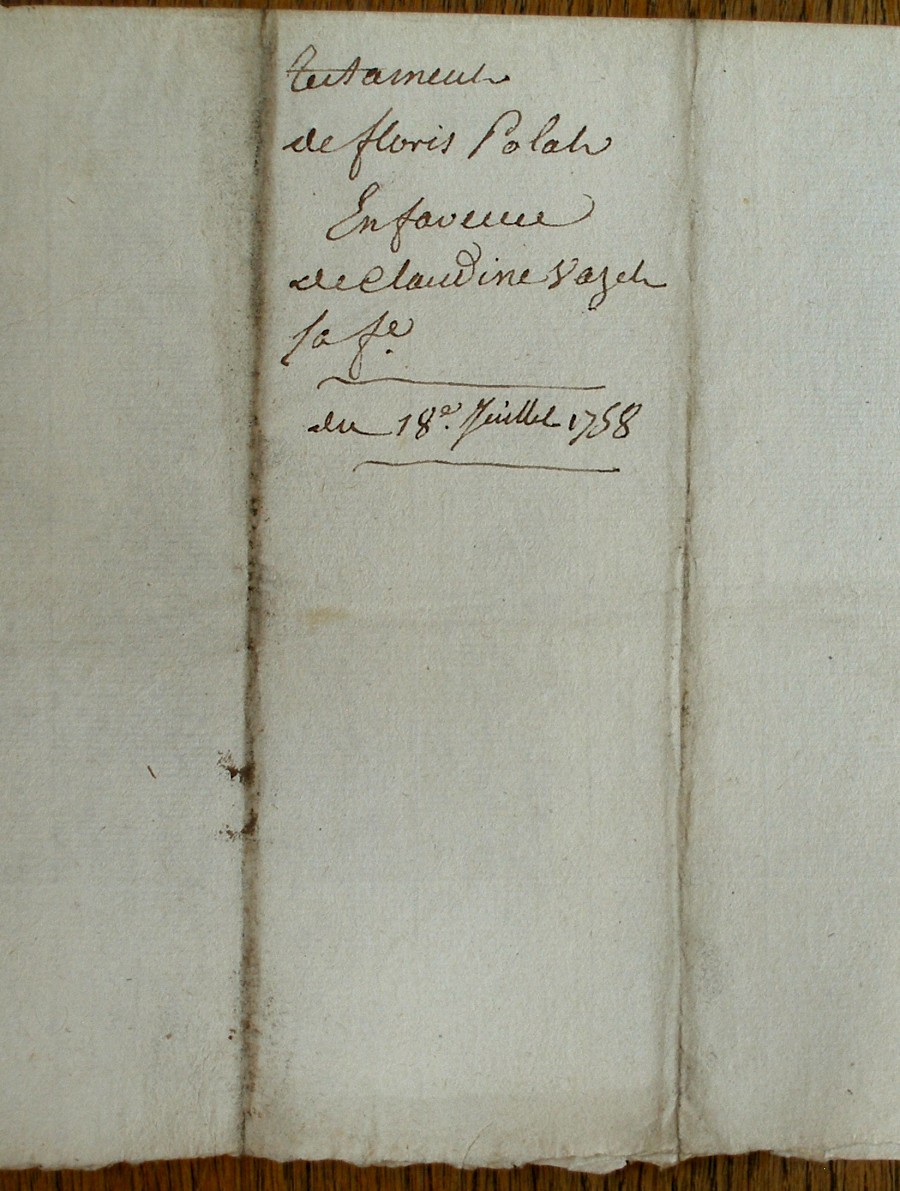 testament
de floris Polat
En faveur
de Claudine Vazet
sa fe.
du 18e. Juillet 1758